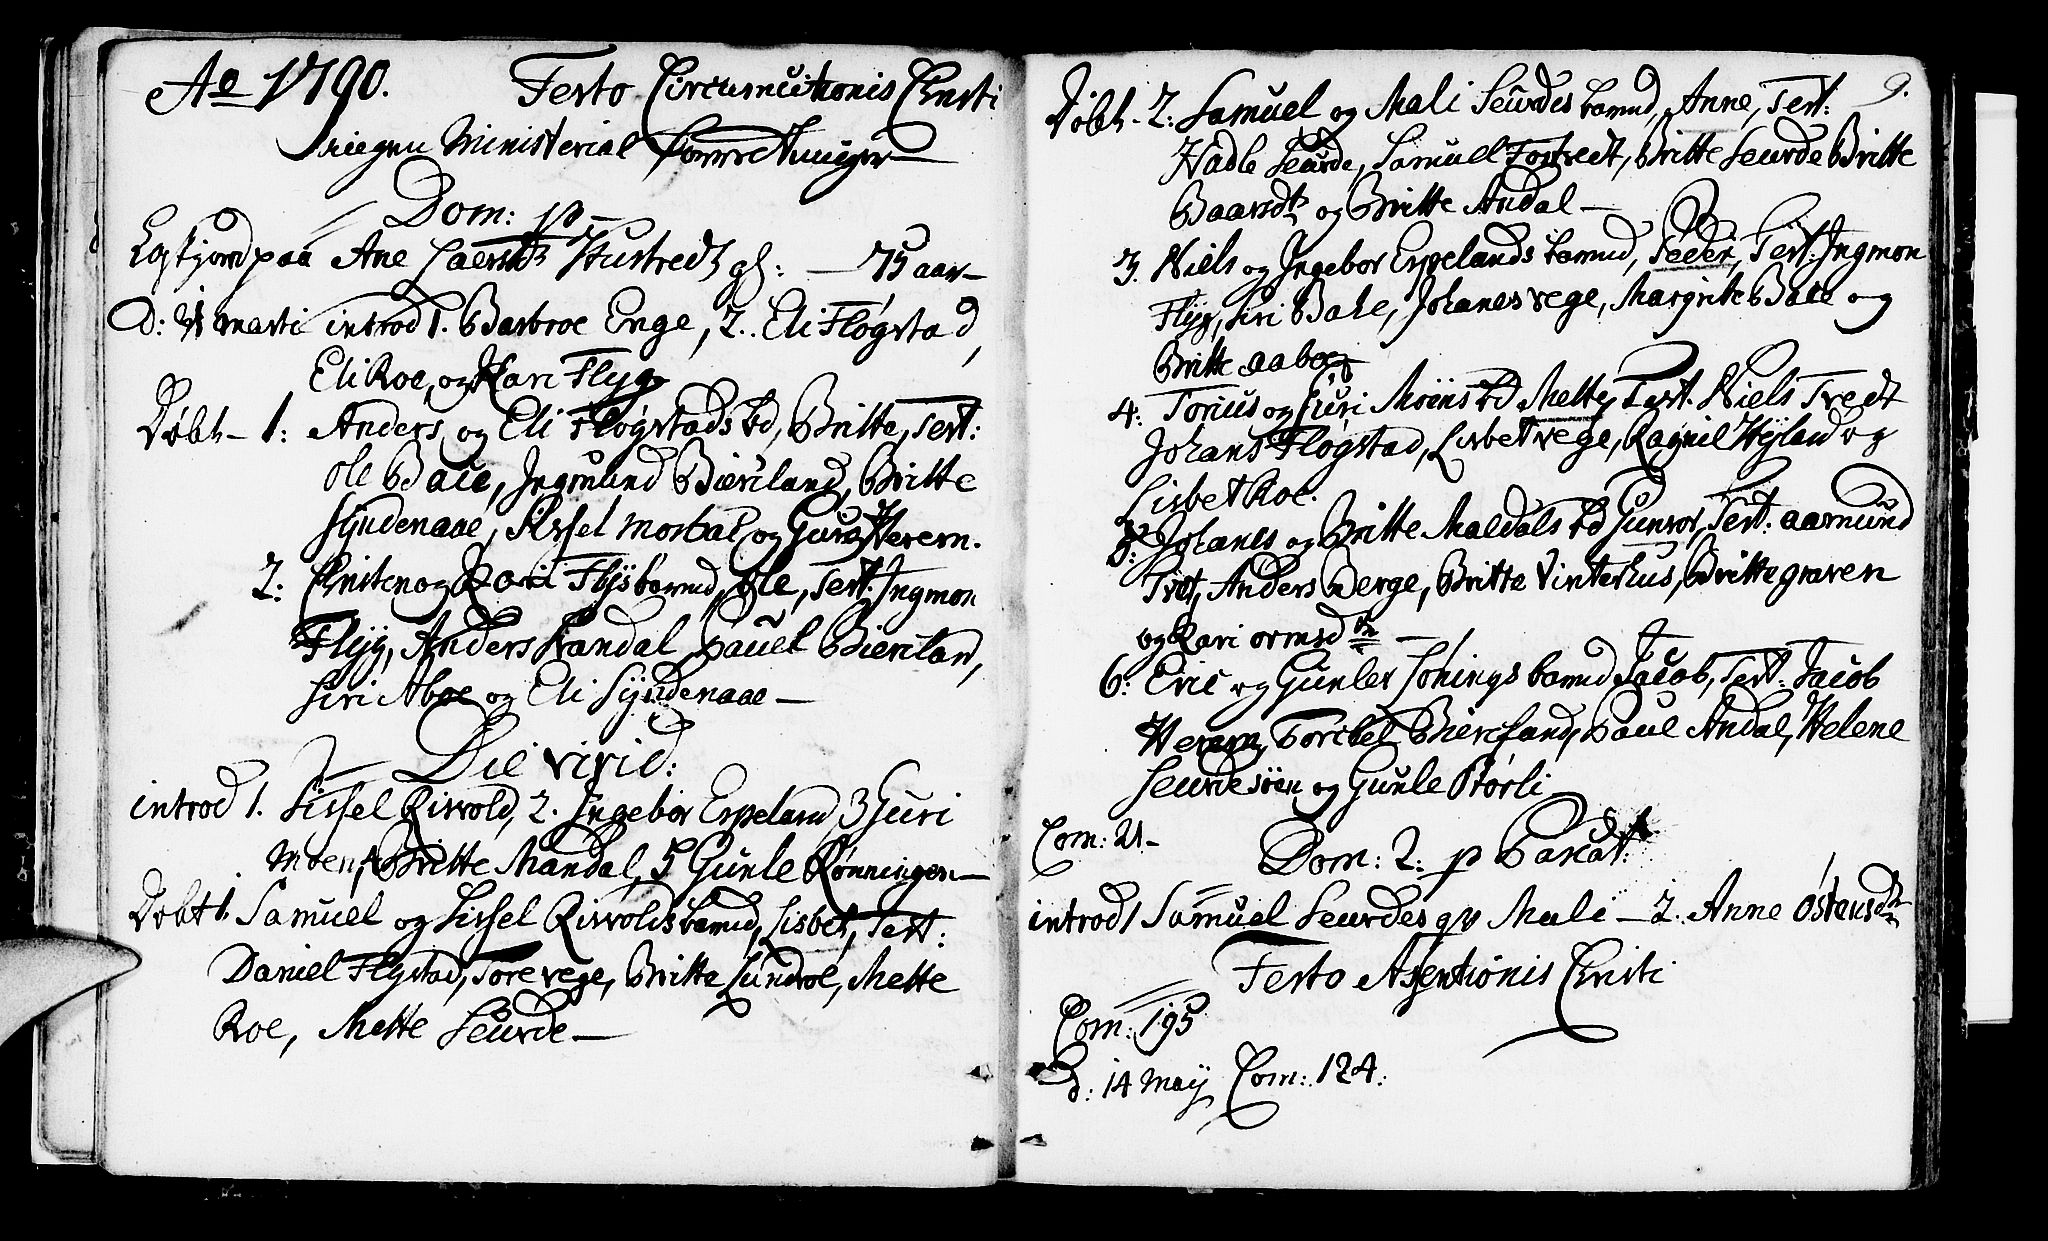 Ao 1790. Festo Circumcitionis Christi
ingen Ministerial Forretninger
Dom: 1 p
Eastjord paa Ane Laersdtr Hustvedt gl: — 75 aar —
D: 21 marti introd 1. Barbroe Enge, 2. Eli Fløgstad,
Eli Roe, og Kari Flyg
Døbt — 1: Anders og Eli Fløgstads bd, Britte, Test:
Ole Bace, Ingmund Biereland, Britte
Syndenaae, Sissel Mosbal og Guro Herern.
2: Christen og Kari Flys barnd, Ole, Test: Ingmon
Flyg, Anders Handal, Pauel Biereland,
Siri Aboe og Eli Syndenaae —
Die virid:
introd 1. Sissel Risvold, 2. Ingebor Espeland 3 Guri
Moen, 4 Britte Mandal, 5 Gunle Rønningen —
Døbt 1. Samuel og Sissel Risvolds barnd, Lisbet, Test:
Daniel Flystad, Tore vege, Britte Lundroe, Mette
Roe, Mette Seurde —
9.
Døbt — 2: Samuel og Mali Seurdes barnd, Anne, Test:
Hadle Seurde, Samuel Tostvedt, Britte Seurde Britte
Baardtr og Britte Andal —
3. Niels og Ingebor Espelands barnd, Peder, Test: Ingmon
Flyg, Siri Bake, Johanes vege, Margrite Bake og
Britte aaboe
4: Torius og Guri Moens bd Mette, Test. Niels Tvedt
Johans Fløgstad, Lisbet vege, Ragnil Hyland og
Lisbet Roe.
5: Johanes og Britte Maldals bd Gunror, Test: Aarmund
Tvet, Anders Berge, Britte Vinterhus, Britte graven
og Kari ormsdtr —
6: Eric og Gunler Hønings barnd Jacob, Test: Jacob
Herern, Torcbel Biereland, Paul Andal, Helene
Seurdesøen og Gunle Størli —
Com: 21 —
Dom: 2: p Pascat:
introd 1 Samuel Seurdes qv Mali — 2. Anne Østensdtr
Festo Asentionis Christi
Com: 195
d: 14 Maÿ Com: 124: